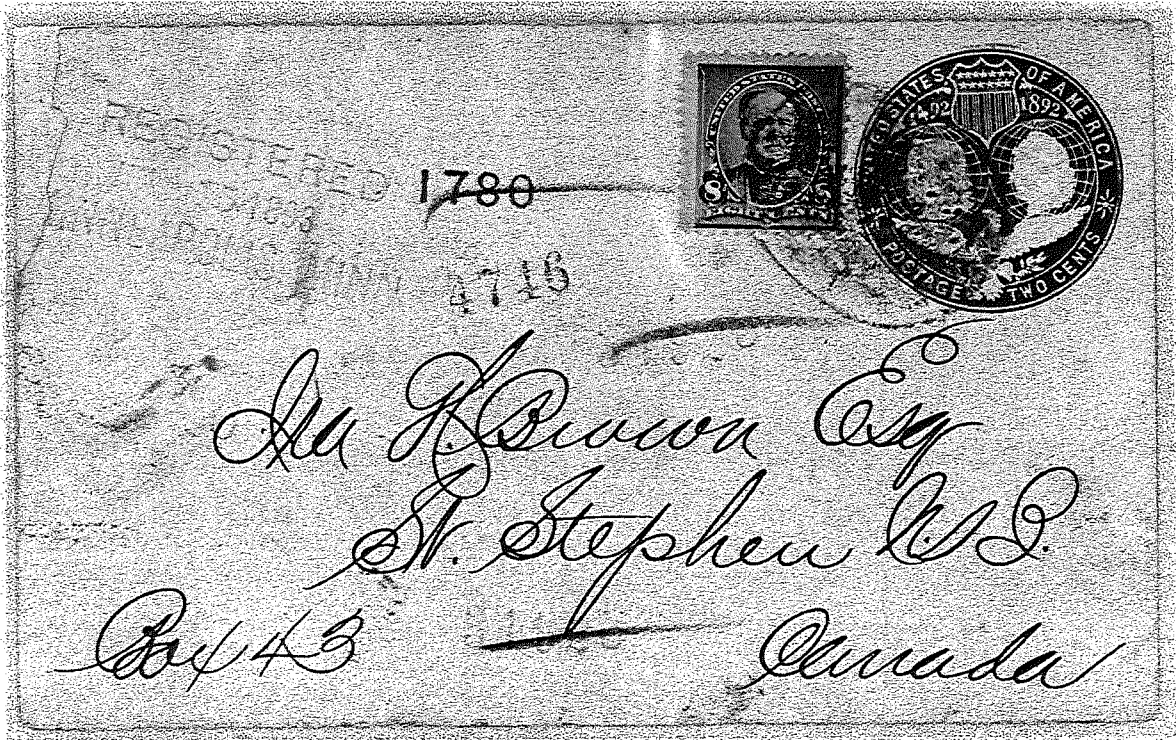 REGISTERED
1780
4716
8
UNITED STATES OF AMERICA
1892
POSTAGE TWO CENTS
Ira H. Brown Esq
St. Stephen N.B.
Box 43
Canada